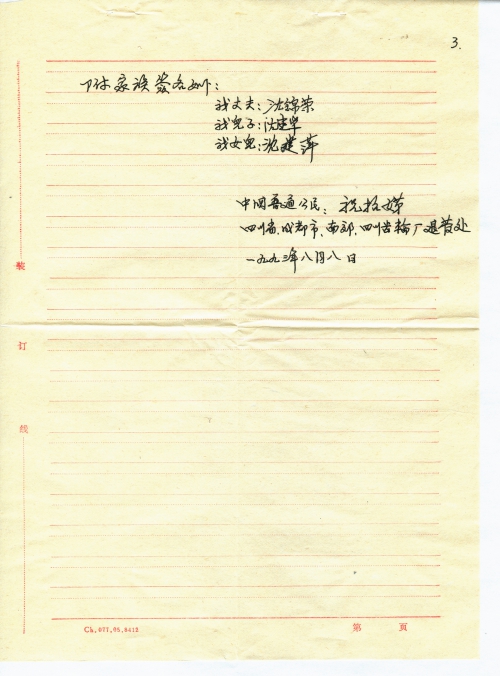 3.
下附家族签名如下:
我丈夫:沈锦荣
我儿子:沈建华
我女儿:沈建萍
中国普通公民:祝招娣
四川省、成都市、南郊、四川齿轮厂退管处
一九九三年八月八日
装
订
线
Ch.077.05.8412
第 页